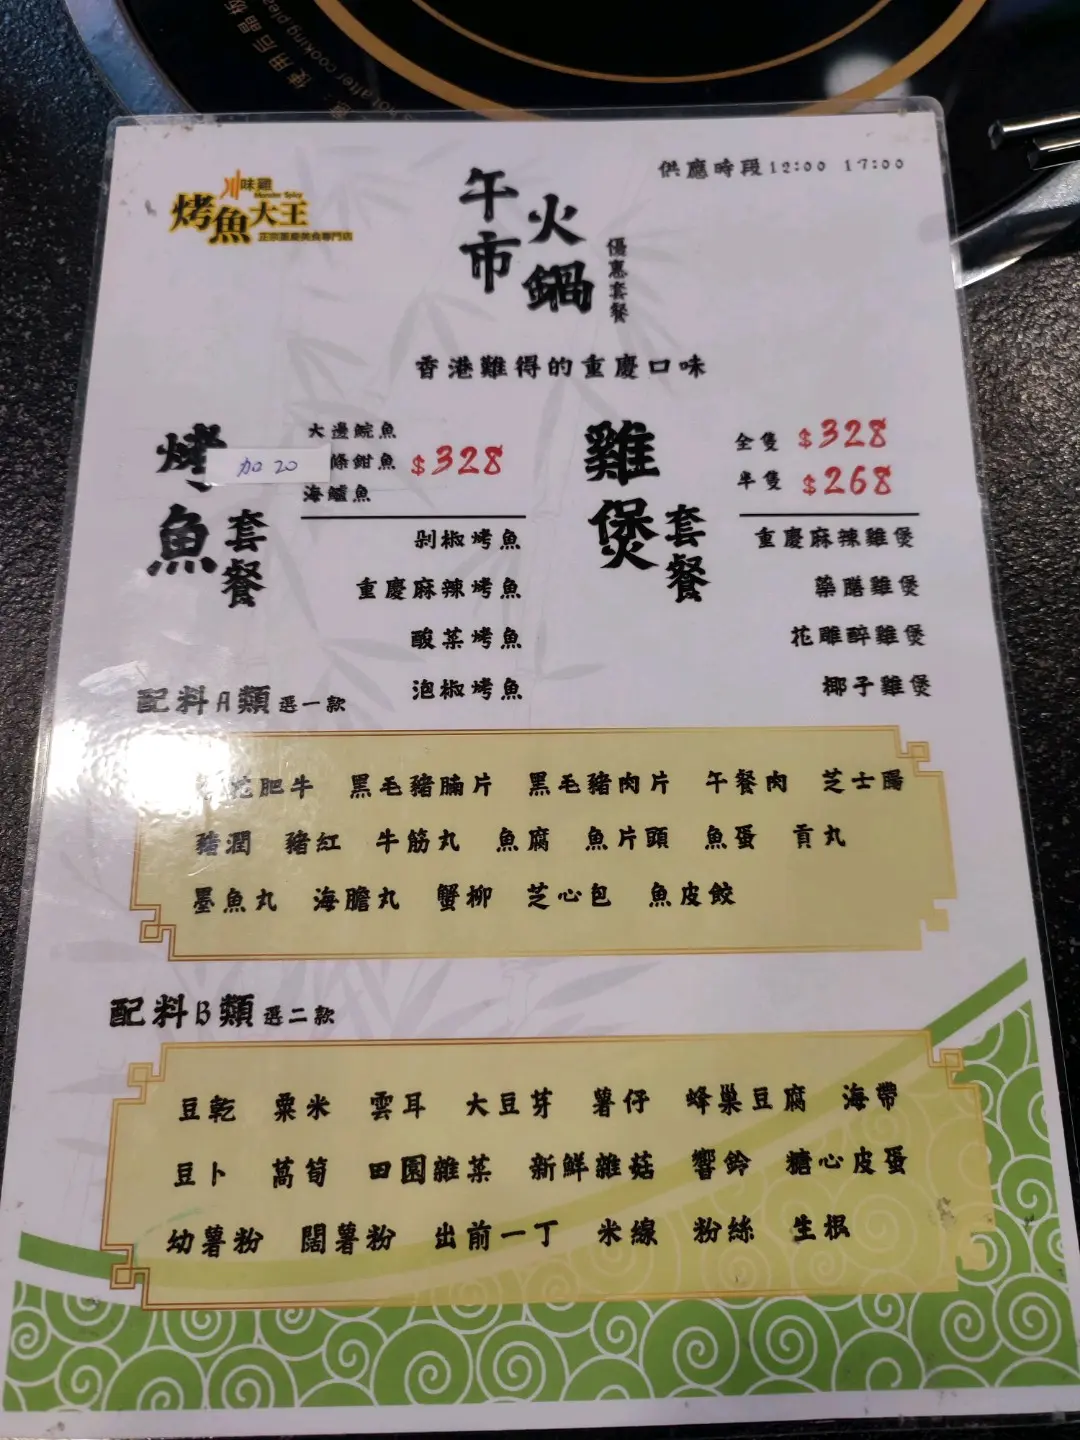 使用后晶板
hot after cooking plea
川味雞
烤魚大王
正宗重慶美食專門店
供應時段12:00 17:00
午市
火鍋
優惠套餐
香港難得的重慶口味
烤魚
套餐
加20
大邊鯇魚
條鉗魚
海鱸魚
$328
剁椒烤魚
重慶麻辣烤魚
酸菜烤魚
泡椒烤魚
雞煲
套餐
全隻 $328
半隻 $268
重慶麻辣雞煲
藥膳雞煲
花雕醉雞煲
椰子雞煲
配料A類 選一款
肥牛 黑毛豬腩片 黑毛豬肉片 午餐肉 芝士腸
豬潤 豬紅 牛筋丸 魚腐 魚片頭 魚蛋 貢丸
墨魚丸 海膽丸 蟹柳 芝心包 魚皮餃
配料B類 選二款
豆乾 粟米 雲耳 大豆芽 薯仔 蜂巢豆腐 海帶
豆卜 萵筍 田園雜菜 新鮮雜菇 響鈴 糖心皮蛋
幼薯粉 闊薯粉 出前一丁 米線 粉絲 生根